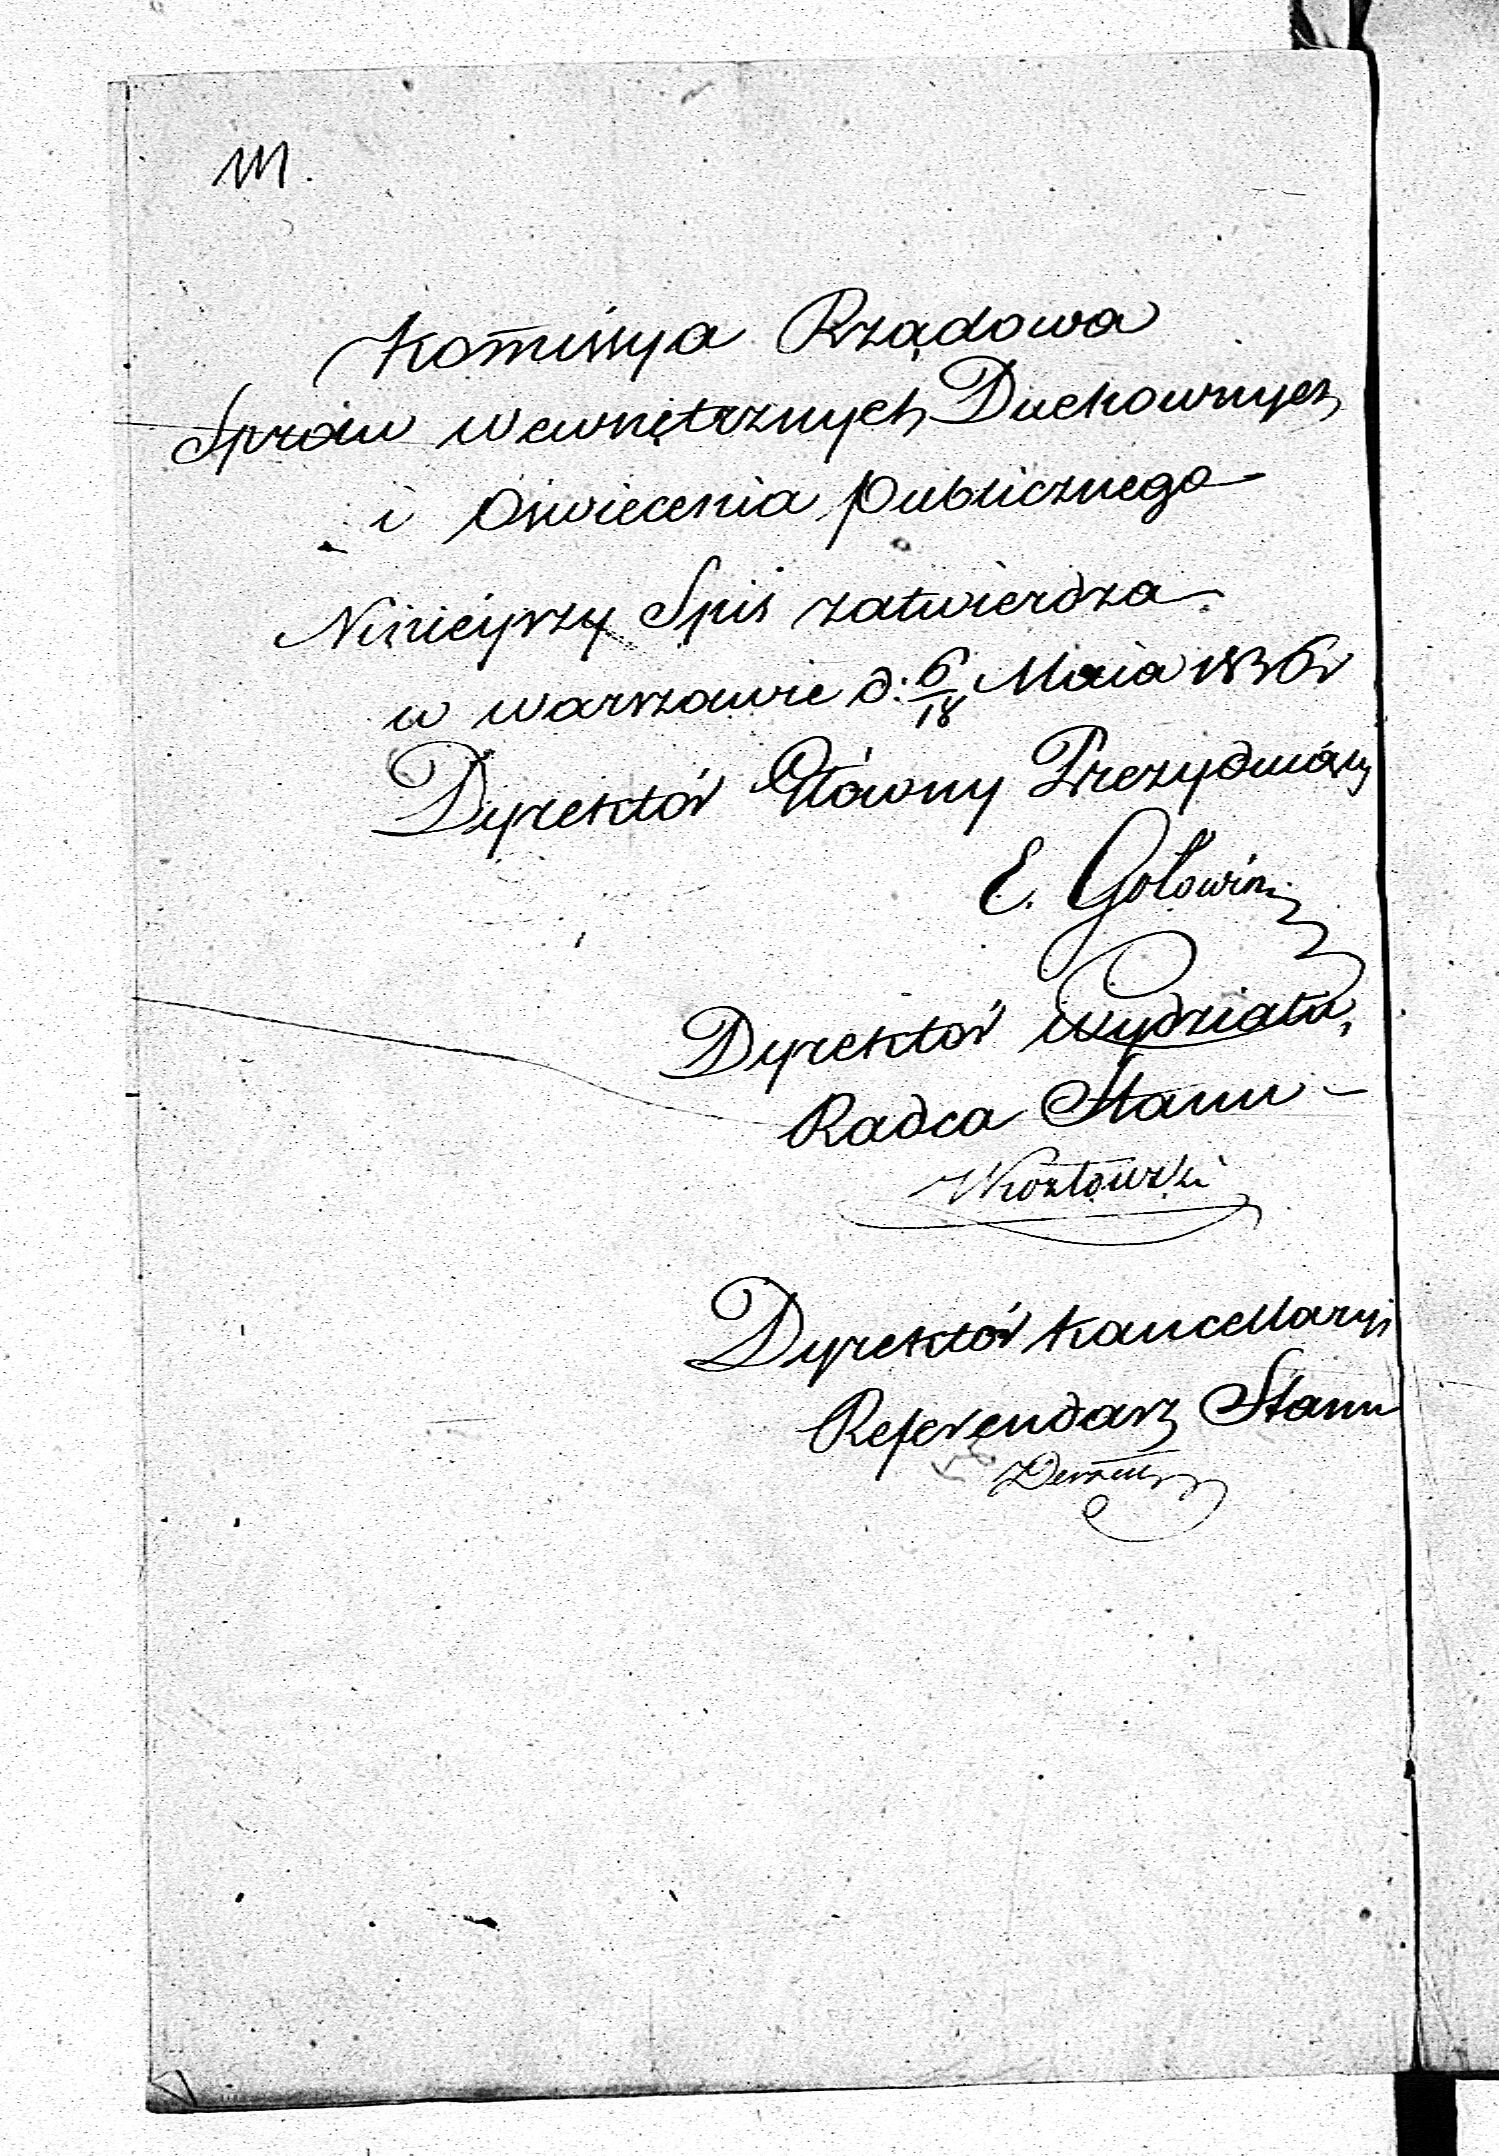 Kom̅issya Rządowa
Spraw wewnętrznych Duchownych
i Oświecenia publicznego
Ninieyszy Spis zatwierdza
w Warszawie d: 6/18 Maia 1836 r
Dyrektór Główny Prezyduiący
E. Gołowin
Dyrektór Wydziału,
Radca Stanu
Kozłowski
Dyrektór Kancellaryi
Referendarz Stanu